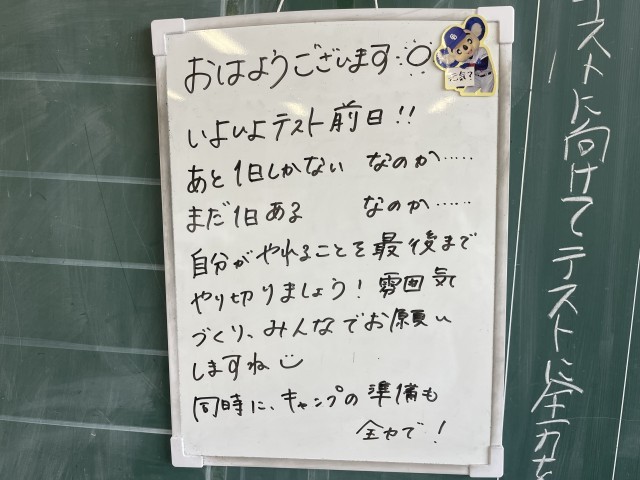 おはようございます
元気?
いよいよテスト前日!!
あと1日しかない なのか……
まだ1日ある なのか……
自分がやれることを最後まで
やり切りましょう! 雰囲気
づくり、みんなでお願い
しますね
同時に、キャンプの準備も
全力で!
テストに向けてテストに全力を